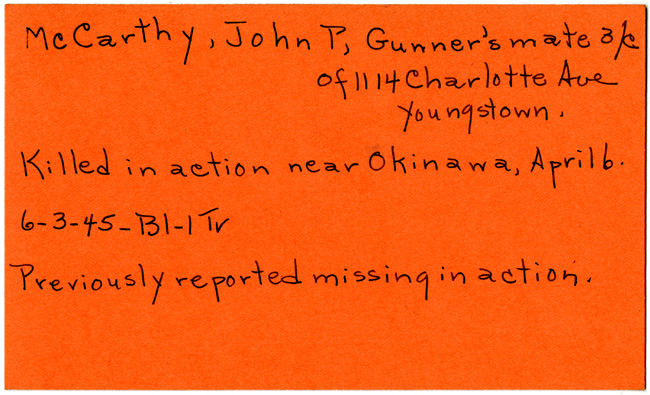 McCarthy, John P, Gunner's mate 3/c
of 1114 Charlotte Ave
Youngstown.
Killed in action near Okinawa, April 6.
6-3-45-B1-1 Tr
Previously reported missing in action.